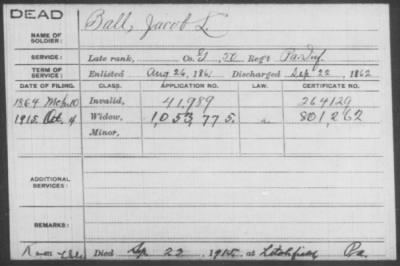 DEAD
NAME OF SOLDIER: Ball, Jacob L.
SERVICE: Late rank, Co. G, 50 Reg't Pa. Inf.
TERM OF SERVICE: Enlisted Aug 26, 1861 Discharged Sep 22, 1862
DATE OF FILING. CLASS. APPLICATION NO. LAW. CERTIFICATE NO.
1864 Mch 10 Invalid, 41,989 264129
1915 Oct 4 Widow, 1,053,775. 801,262
Minor,
ADDITIONAL SERVICES:
REMARKS:
Died Sep 22, 1915, at Litchfield Pa.